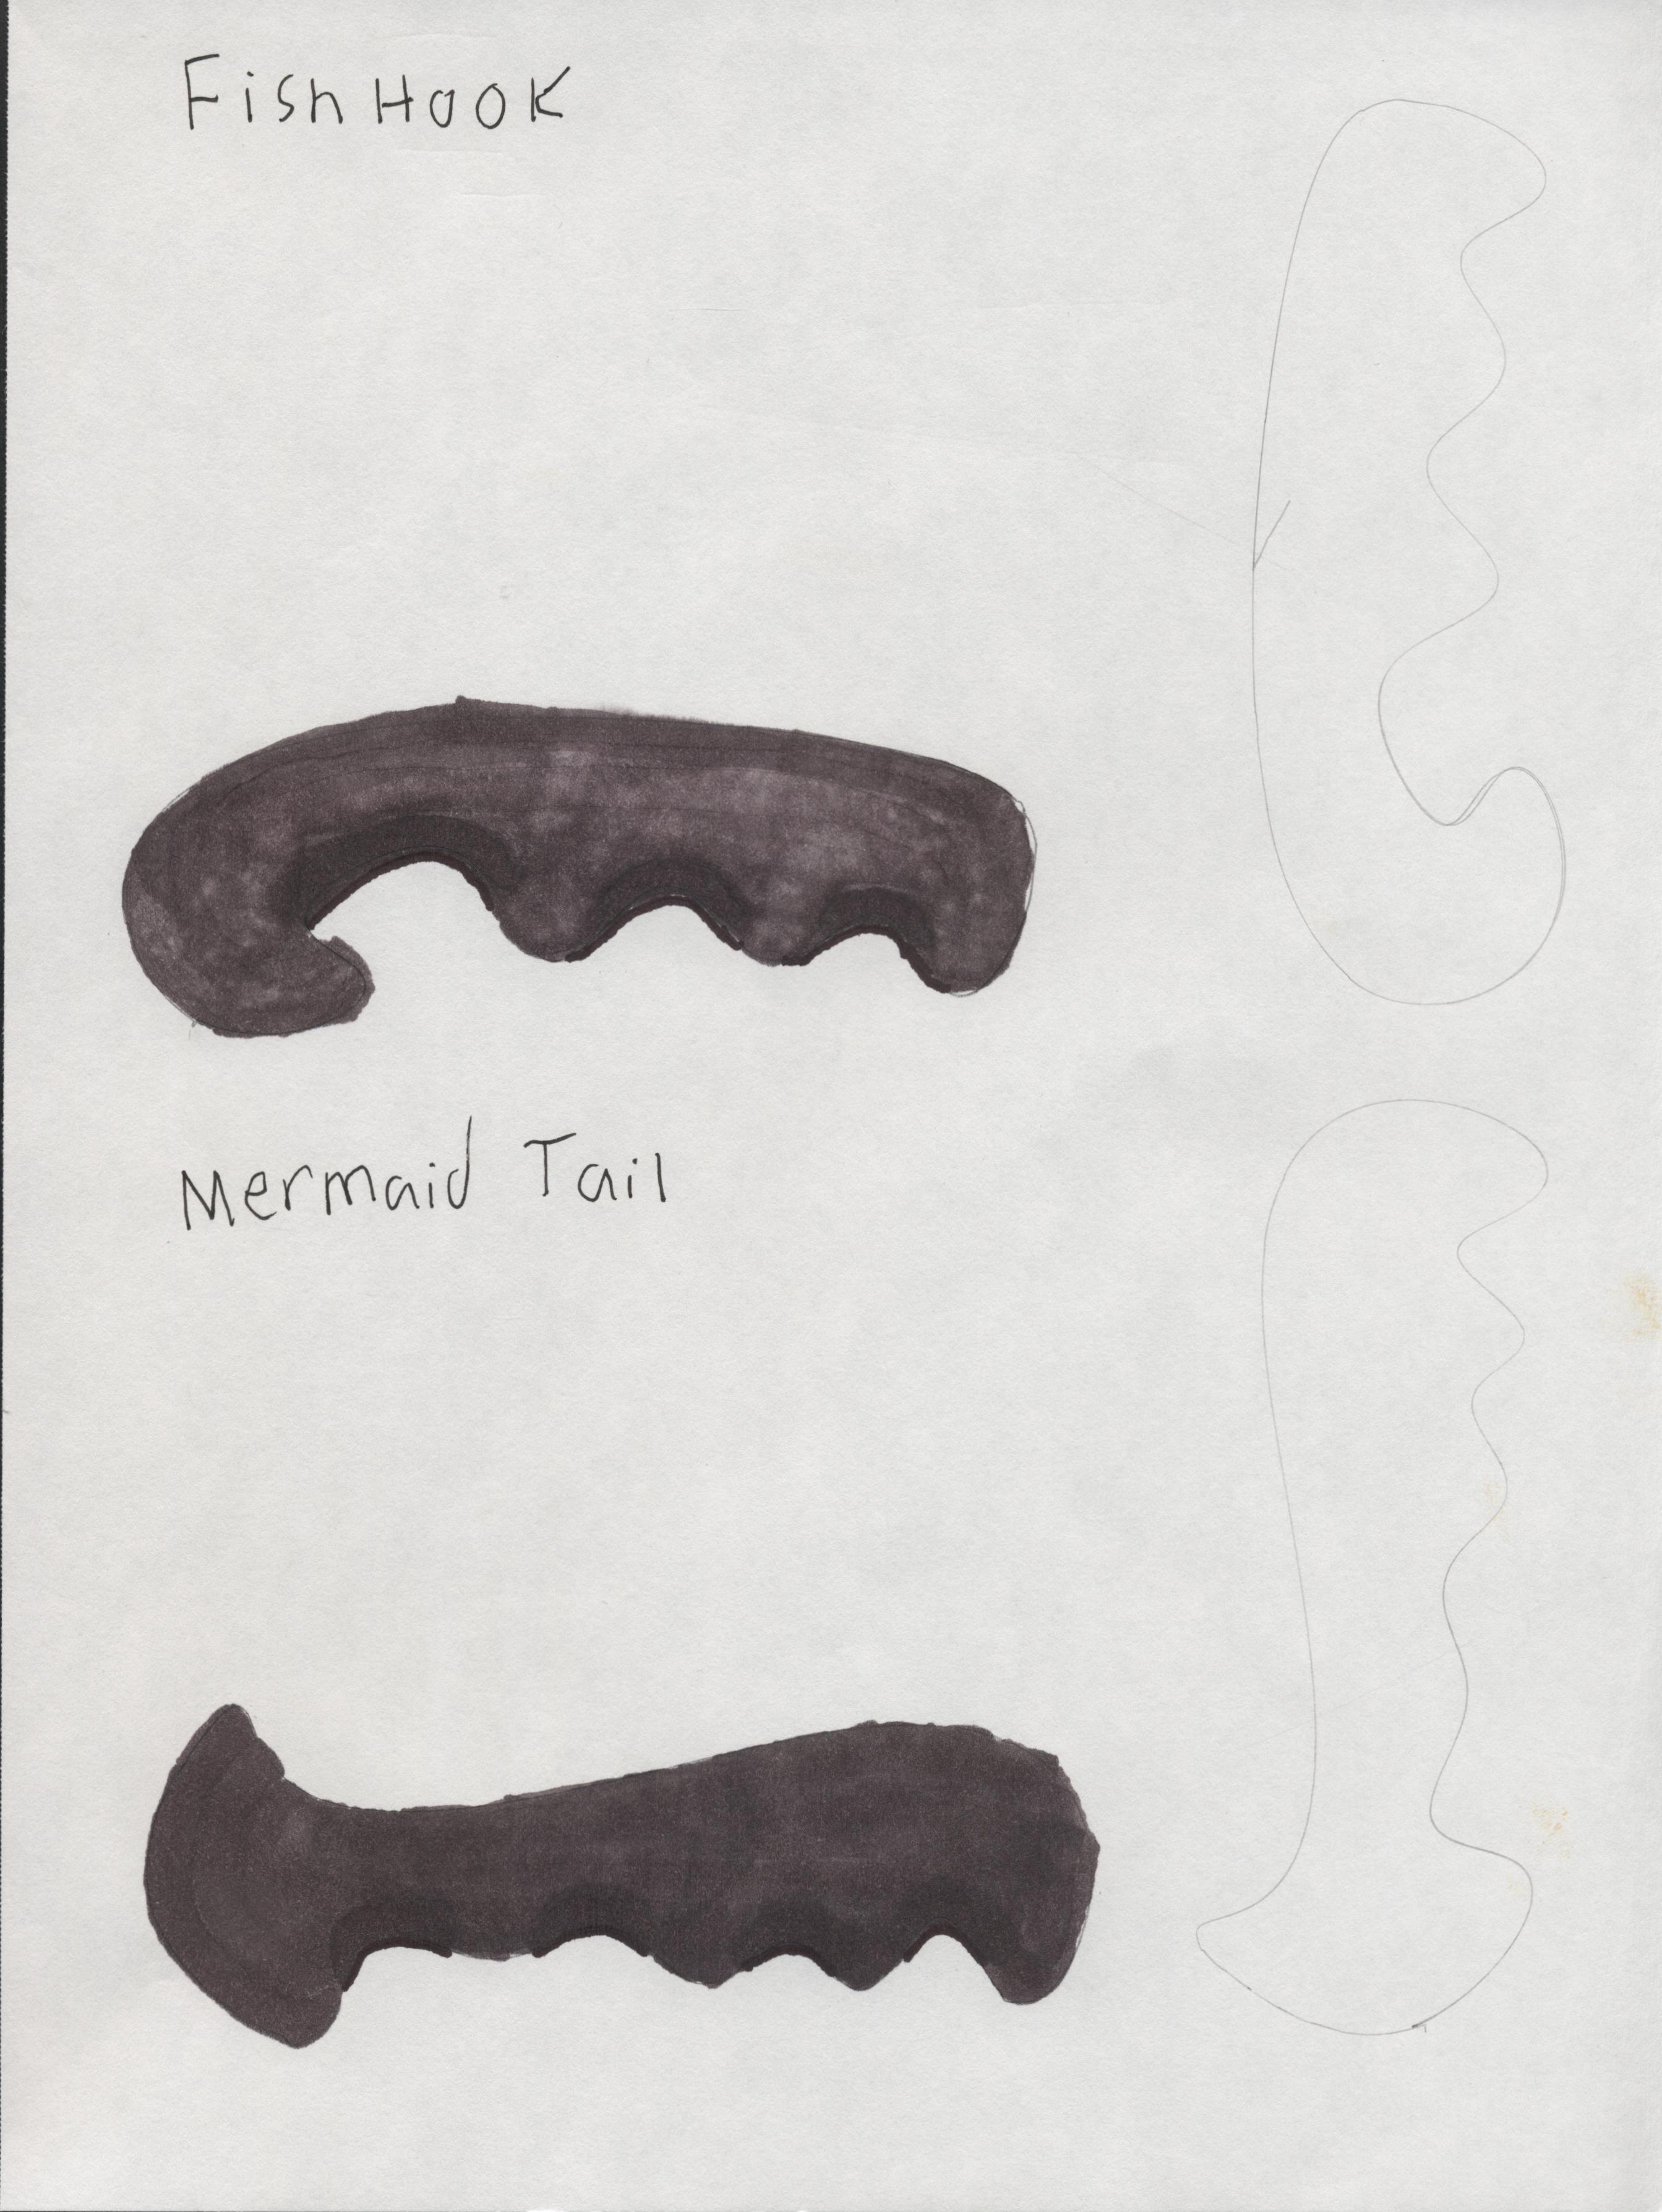 Fish Hook
Mermaid Tail